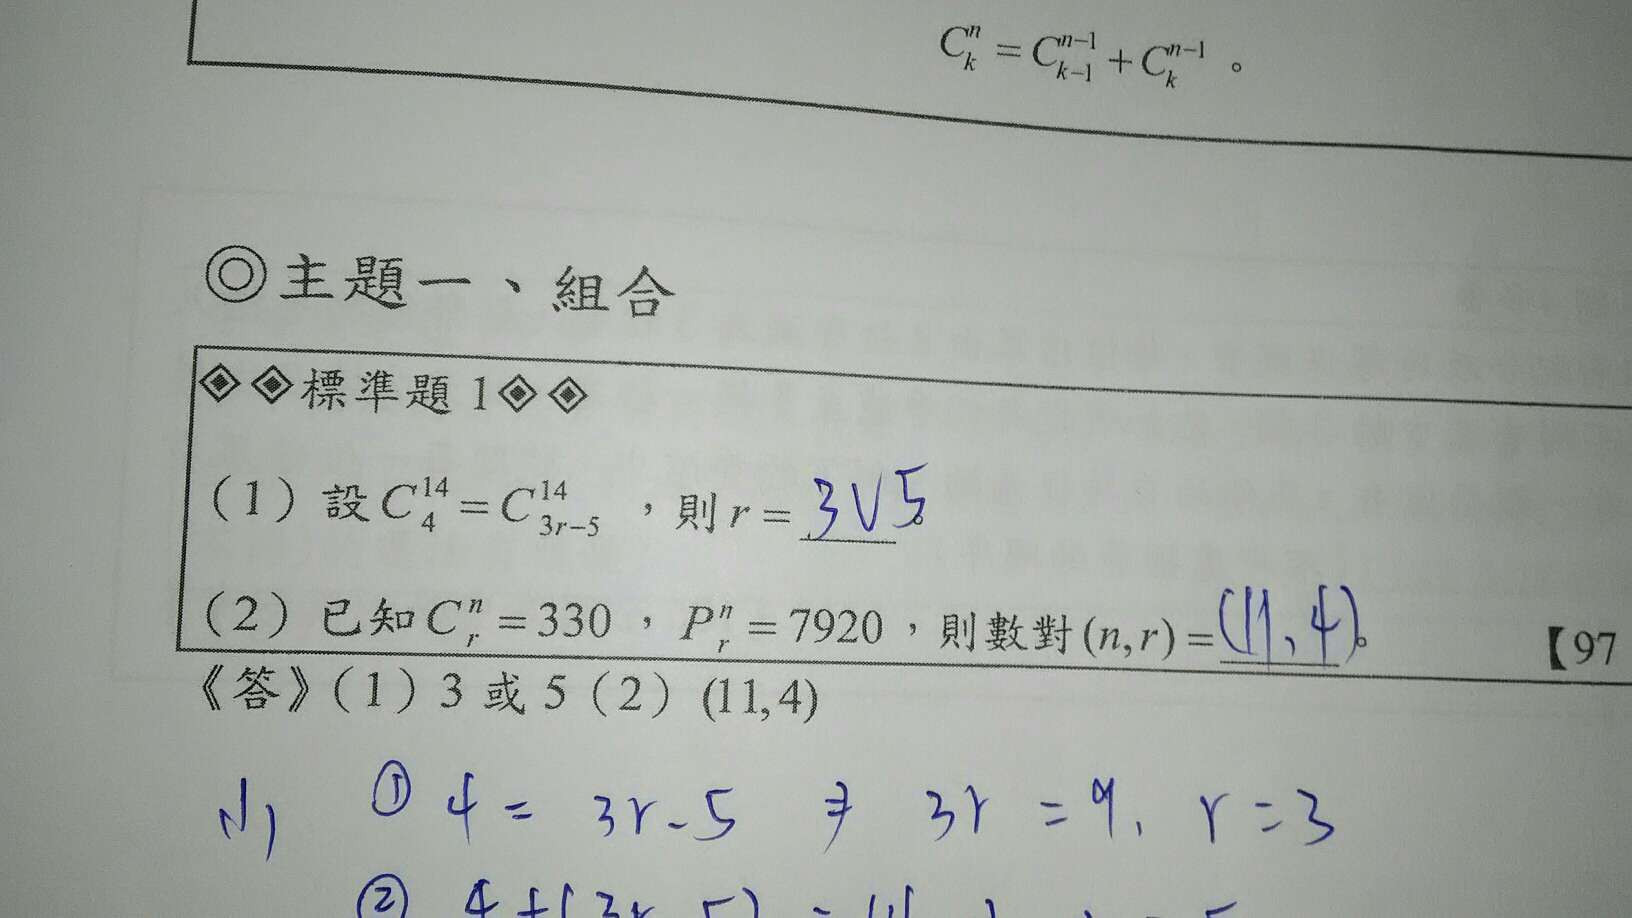 C^n_k = C^{n-1}_{k-1} + C^{n-1}_k 。
◎主題一、組合
◈◈標準題 1◈◈
（1）設 C^{14}_4 = C^{14}_{3r-5} ，則 r = 3∨5。
（2）已知 C^n_r = 330 ， P^n_r = 7920 ，則數對 (n,r) = (11,4)。
【97
《答》（1）3 或 5（2）(11,4)
(1) ① 4 = 3r-5 ⇒ 3r = 9, r = 3
② 4+(3r-5) = 14